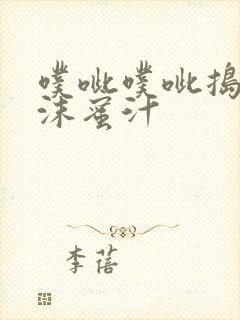 噗呲噗呲捣
沫蜜汁
李蓓